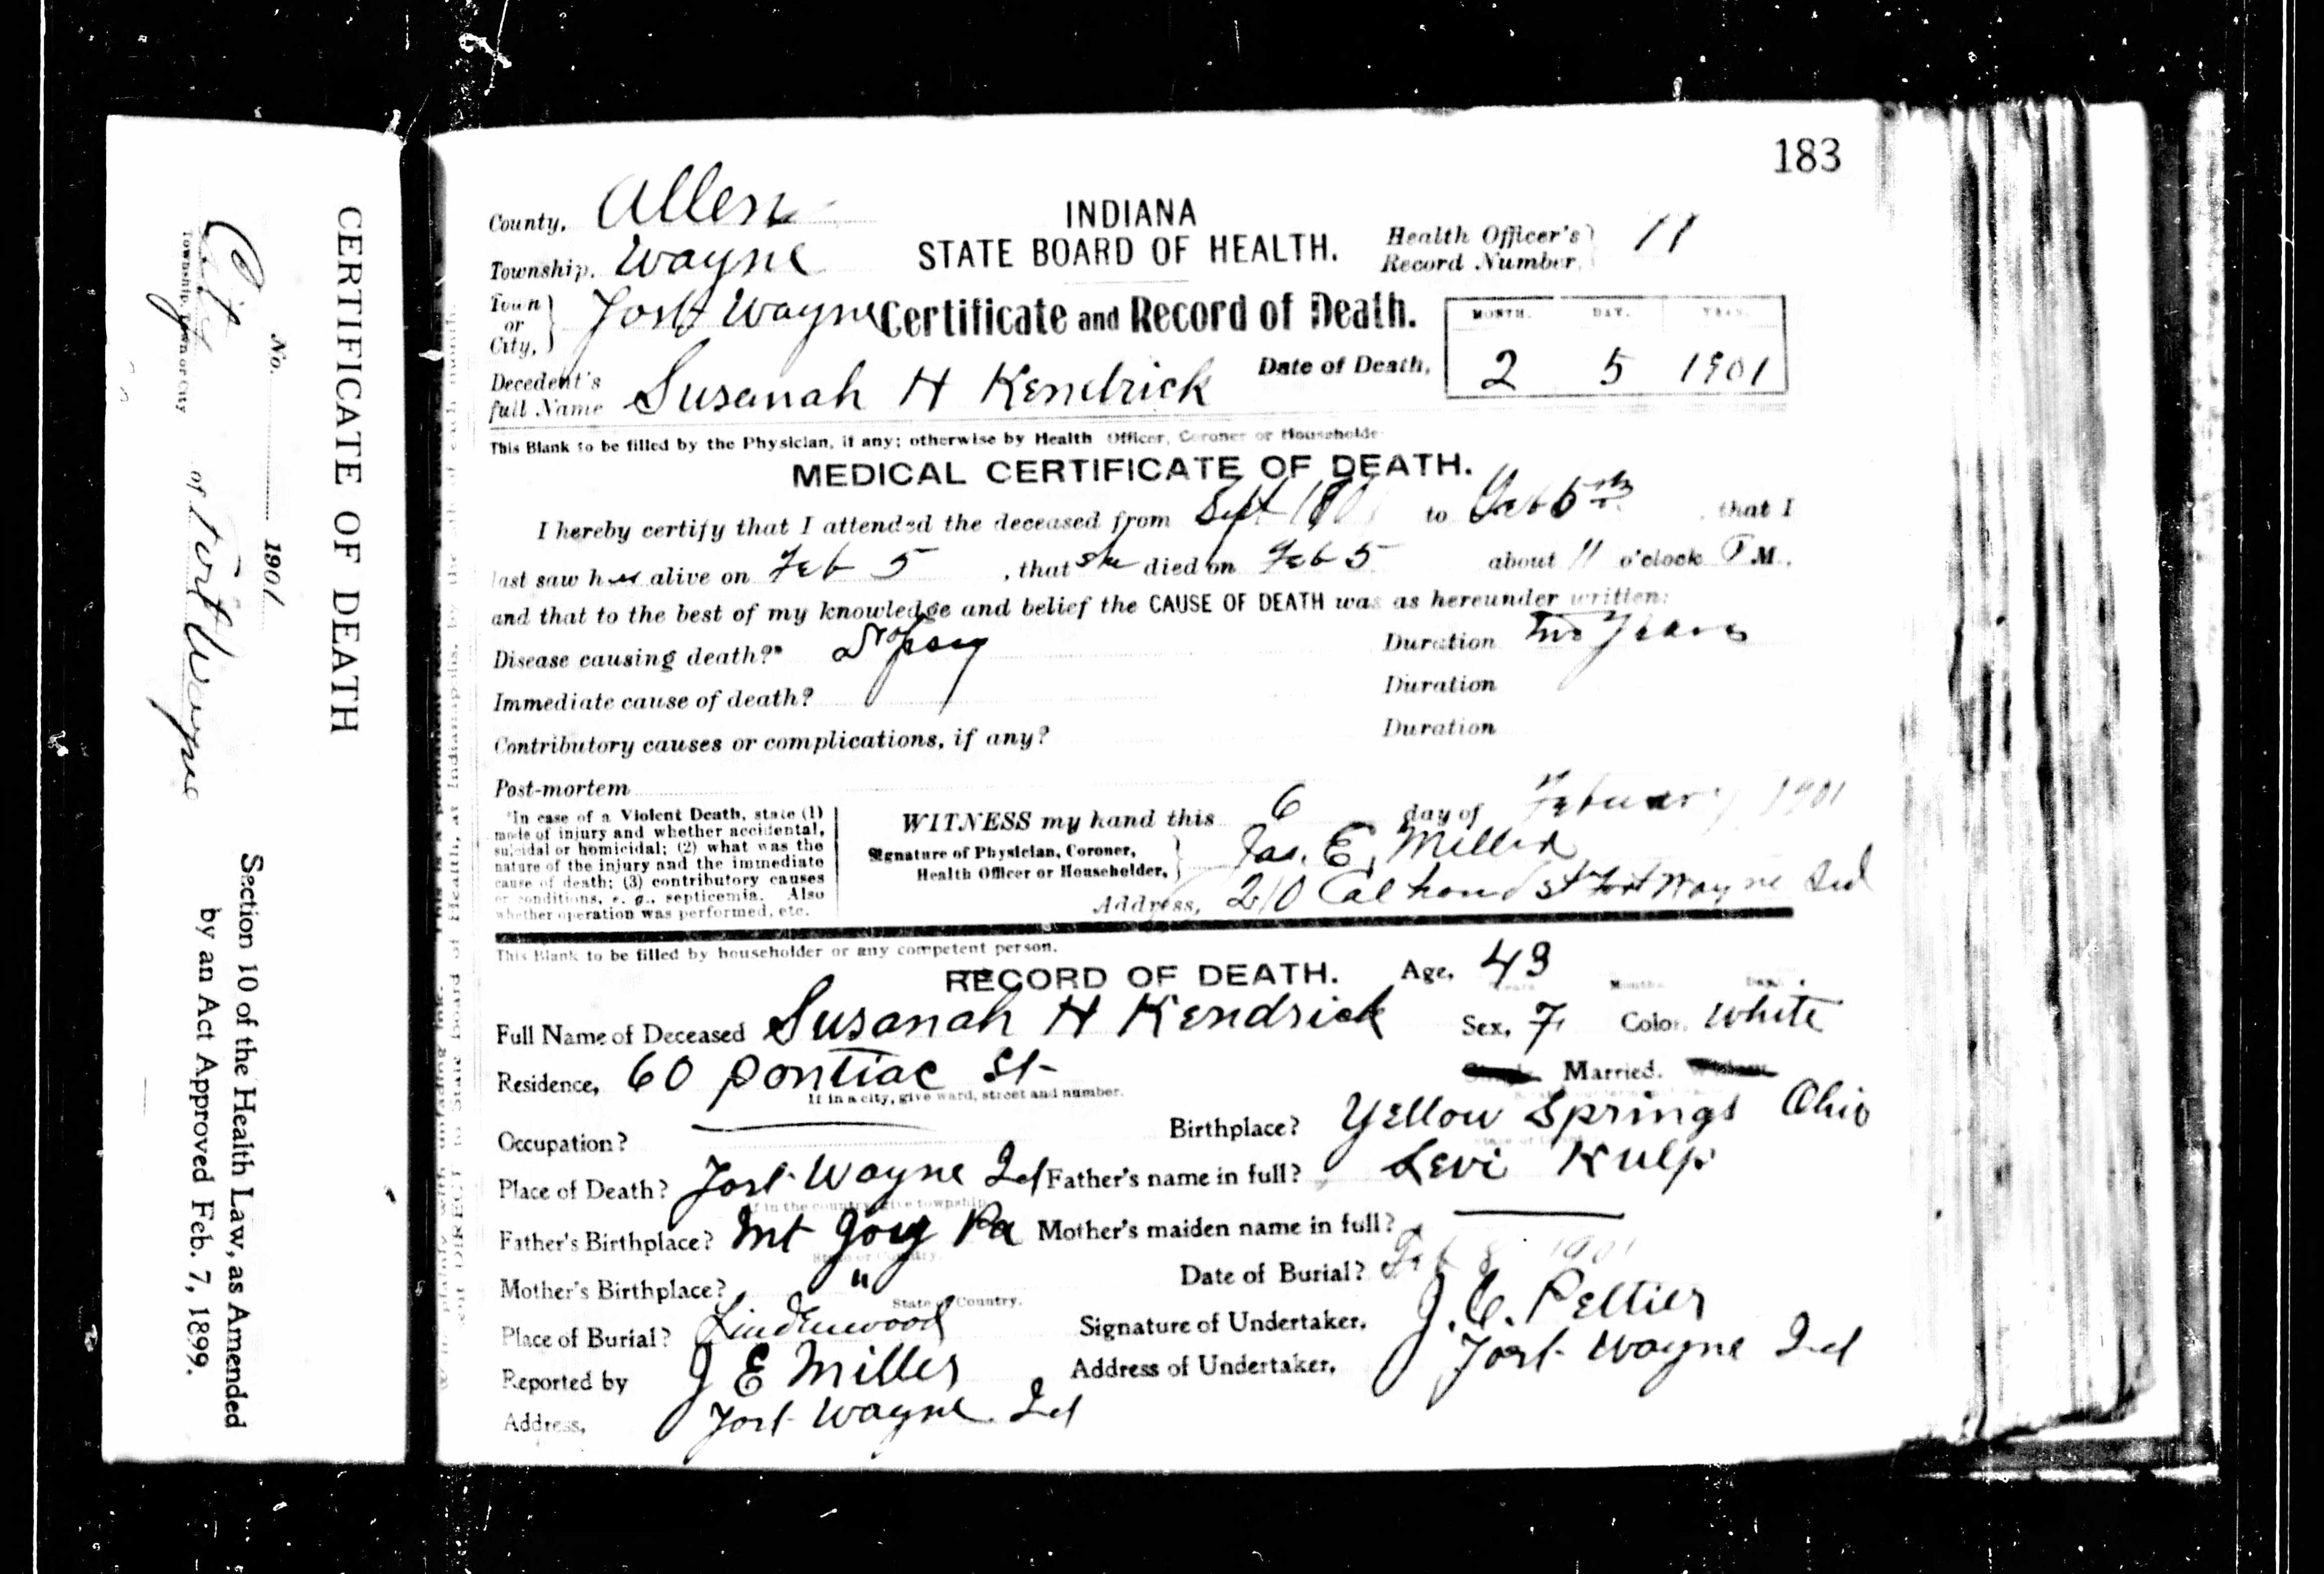 183
County, Allen
INDIANA
Township, Wayne
STATE BOARD OF HEALTH.
Health Officer's Record Number, 11
Town or City, Fort Wayne
Certificate and Record of Death.
MONTH. DAY. YEAR.
Date of Death, 2 5 1901
Decedent's full Name Susanah H Kendrick
This Blank to be filled by the Physician, if any; otherwise by Health Officer, Coroner or Householde
MEDICAL CERTIFICATE OF DEATH.
I hereby certify that I attended the deceased from Sept to Feb 5th, that I
last saw her alive on Feb 5, that she died on Feb 5 about 11 o'clock P M.,
and that to the best of my knowledge and belief the CAUSE OF DEATH was as hereunder written:
Disease causing death?* Dropsy Duration Two Years
Immediate cause of death? Duration
Contributory causes or complications, if any? Duration
Post-mortem
*In case of a Violent Death, state (1)
mode of injury and whether accidental,
suicidal or homicidal; (2) what was the
nature of the injury and the immediate
cause of death; (3) contributory causes
or conditions, e. g., septicemia. Also
whether operation was performed, etc.
WITNESS my hand this 6 day of Febuary 1901
Signature of Physician, Coroner,
Health Officer or Householder, Jas. E. Miller
Address, 210 Calhoun St Fort Wayne Ind
This Blank to be filled by householder or any competent person.
RECORD OF DEATH.
Age, 43 Years Months Days
Full Name of Deceased Susanah H Kendrick
Sex, F Color, White
Residence, 60 Pontiac St
If in a city, give ward, street and number.
Married.
Occupation?
Birthplace? Yellow Springs Ohio
Place of Death? Fort Wayne Ind
If in the country, give township.
Father's name in full? Levi Kulp
Father's Birthplace? Mt Joy Pa
State or Country.
Mother's maiden name in full?
Mother's Birthplace? "
State or Country.
Date of Burial? Feb 8 1901
Place of Burial? Lindenwood
Signature of Undertaker, J. C. Peltier
Reported by J E Miller
Address of Undertaker, Fort Wayne Ind
Address, Fort Wayne Ind
CERTIFICATE OF DEATH
No. 1901
City of Fort Wayne
Township, Town or City
Section 10 of the Health Law, as Amended
by an Act Approved Feb. 7, 1899.